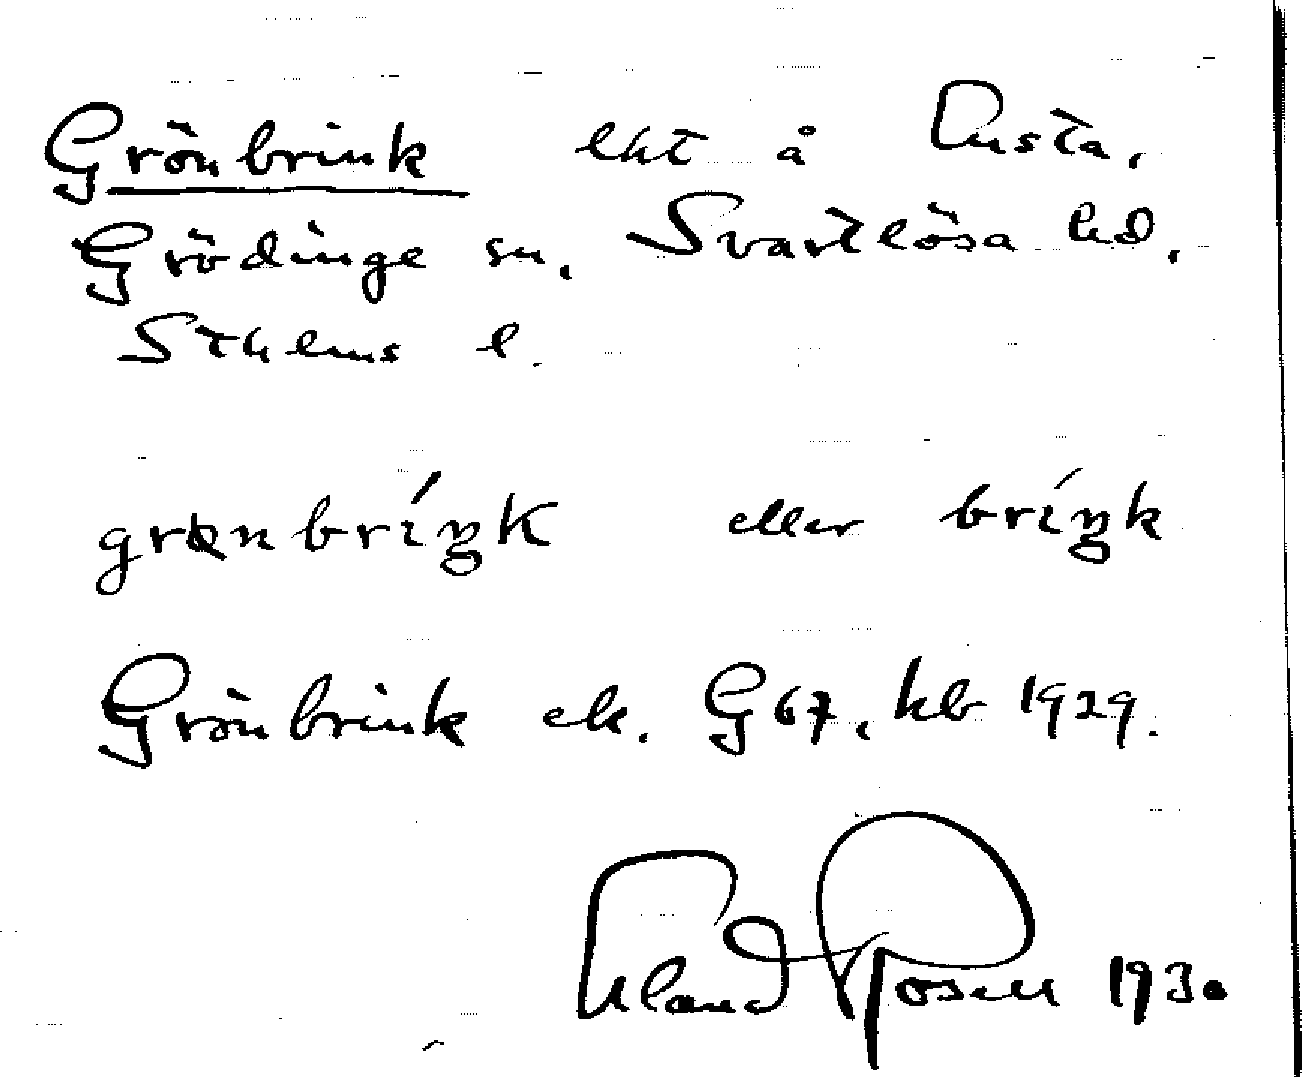 Grönbrink lht å Ansta,
Grödinge sn, Svartlösa hd,
Sthlms l.
eller bríŋk
Grönbrink ek. G67, kb 1929.
Erland Rosell 1930